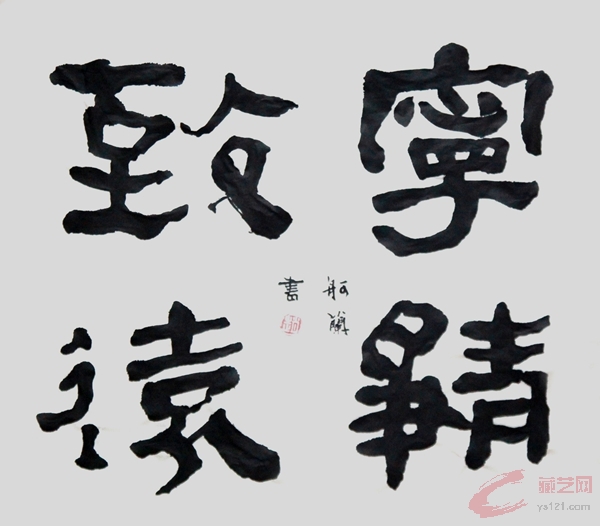 寧靜
致遠
書
藏艺网
ya121.com